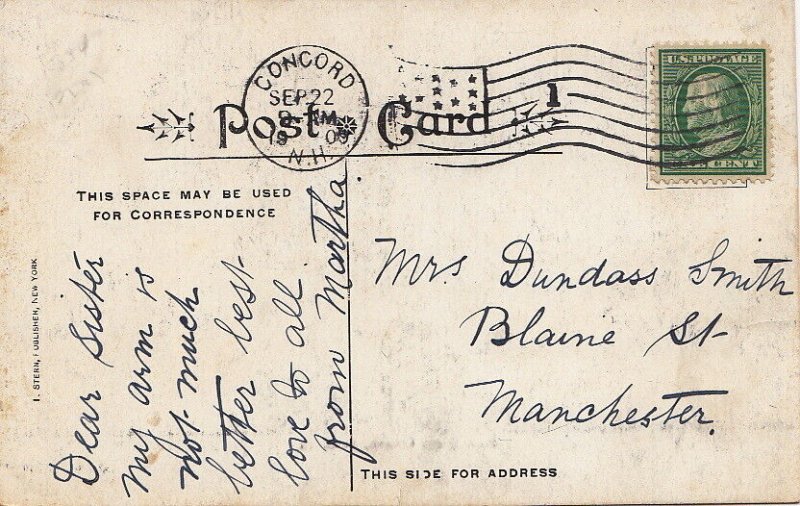 CONCORD
SEP 22
N.H.
1
U.S. POSTAGE
CENT
Post Card
THIS SPACE MAY BE USED
FOR CORRESPONDENCE
I. STERN, PUBLISHER, NEW YORK
Dear Sister
my arm is
not much
better best
love to all
from Martha.
Mrs. Dundass Smith
Blaine St
Manchester.
THIS SIDE FOR ADDRESS